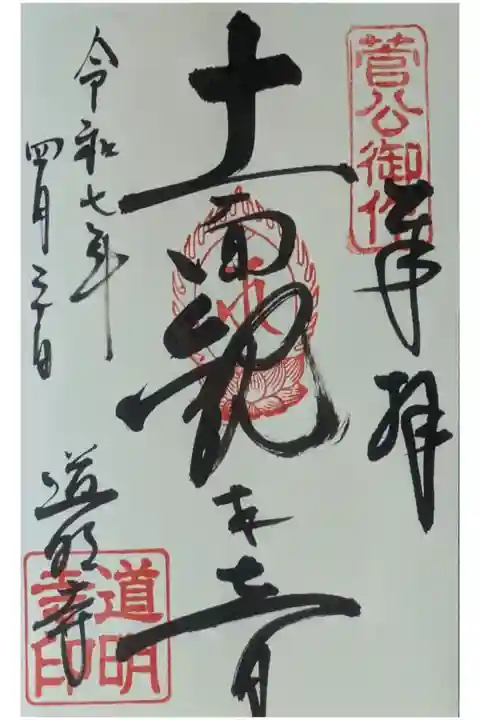 菅公御作
奉拝
十一面観世音
令和七年
四月三日
道明寺
道明寺印